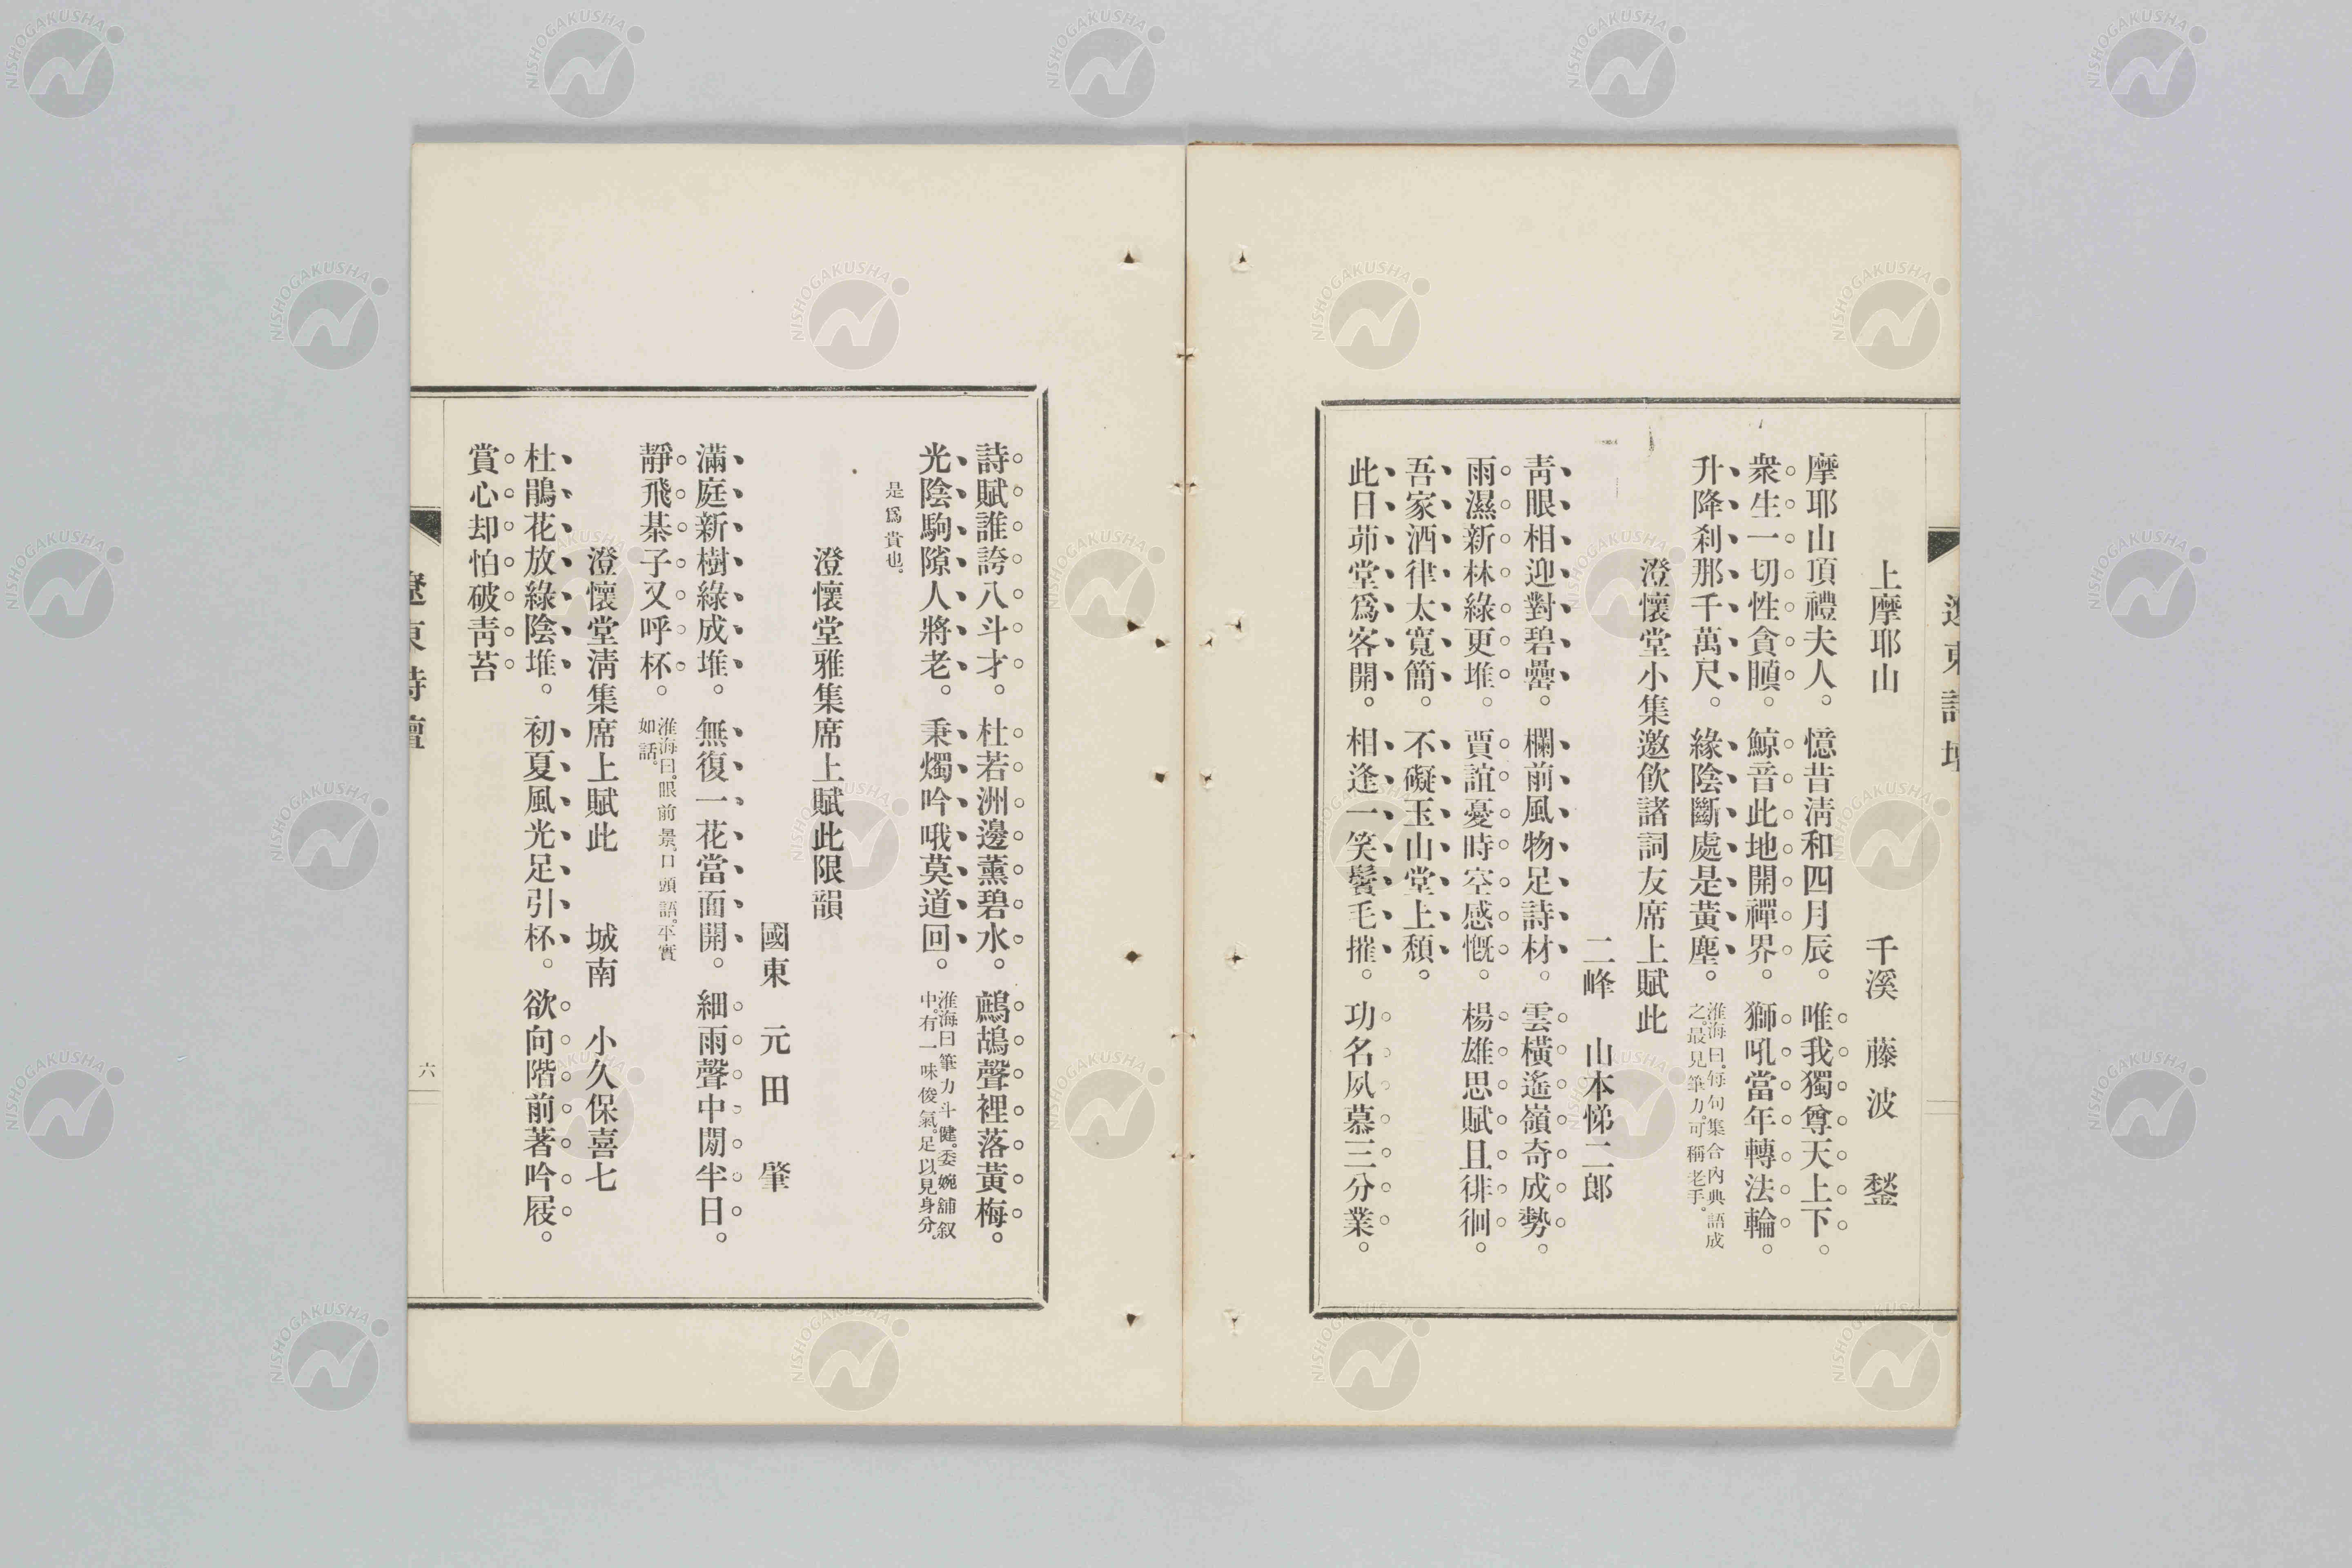 上摩耶山　千溪　藤波　鍫
摩耶山頂禮夫人。憶昔淸和四月辰。唯我獨尊天上下。
衆生一切性貪瞋。鯨音此地開禪界。獅吼當年轉法輪。
升降刹那千萬尺。緣陰斷處是黃塵。淮海曰。每句集合內典語成
之。最見筆力。可稱老手。
澄懷堂小集邀飮諸詞友席上賦此
二峰　山本悌二郞
靑眼相迎對碧罍。欄前風物足詩材。雲橫遙嶺奇成勢。
雨濕新林綠更堆。賈誼憂時空感慨。楊雄思賦且徘徊。
吾家酒律太寬簡。不礙玉山堂上頹。
此日茆堂爲客開。相逢一笑鬢毛摧。功名夙慕三分業。
詩賦誰誇八斗才。杜若洲邊薰碧水。鷓鴣聲裡落黃梅。
光陰駒隙人將老。秉燭吟哦莫道回。淮海曰筆力斗健。委婉舖叙
中。有一味俊氣。足以見身分。
是爲貴也。
澄懷堂雅集席上賦此限韻
國東　元田　肇
滿庭新樹綠成堆。無復一花當面開。細雨聲中閒半日。
靜飛棊子又呼杯。淮海曰。眼前景。口頭語。平實
如話。
澄懷堂淸集席上賦此　城南　小久保喜七
杜鵑花放綠陰堆。初夏風光足引杯。欲向階前著吟屐。
賞心却怕破靑苔
遼東詩壇
六
NISHOGAKUSHA